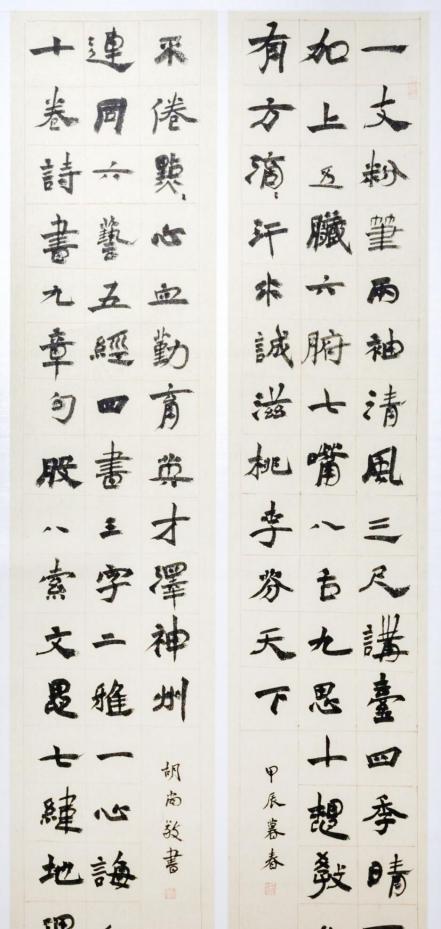 一支粉筆兩袖清風三尺講臺四季晴
加上五臟六腑七嘴八舌九思十想教
有方滴々汗水誠滋桃李芬天下
甲辰暮春
十卷詩書九章句股八索文思七緯地
連同六藝五經四書三字二雅一心誨
不倦點々心血勤育英才澤神州
胡尚敬書